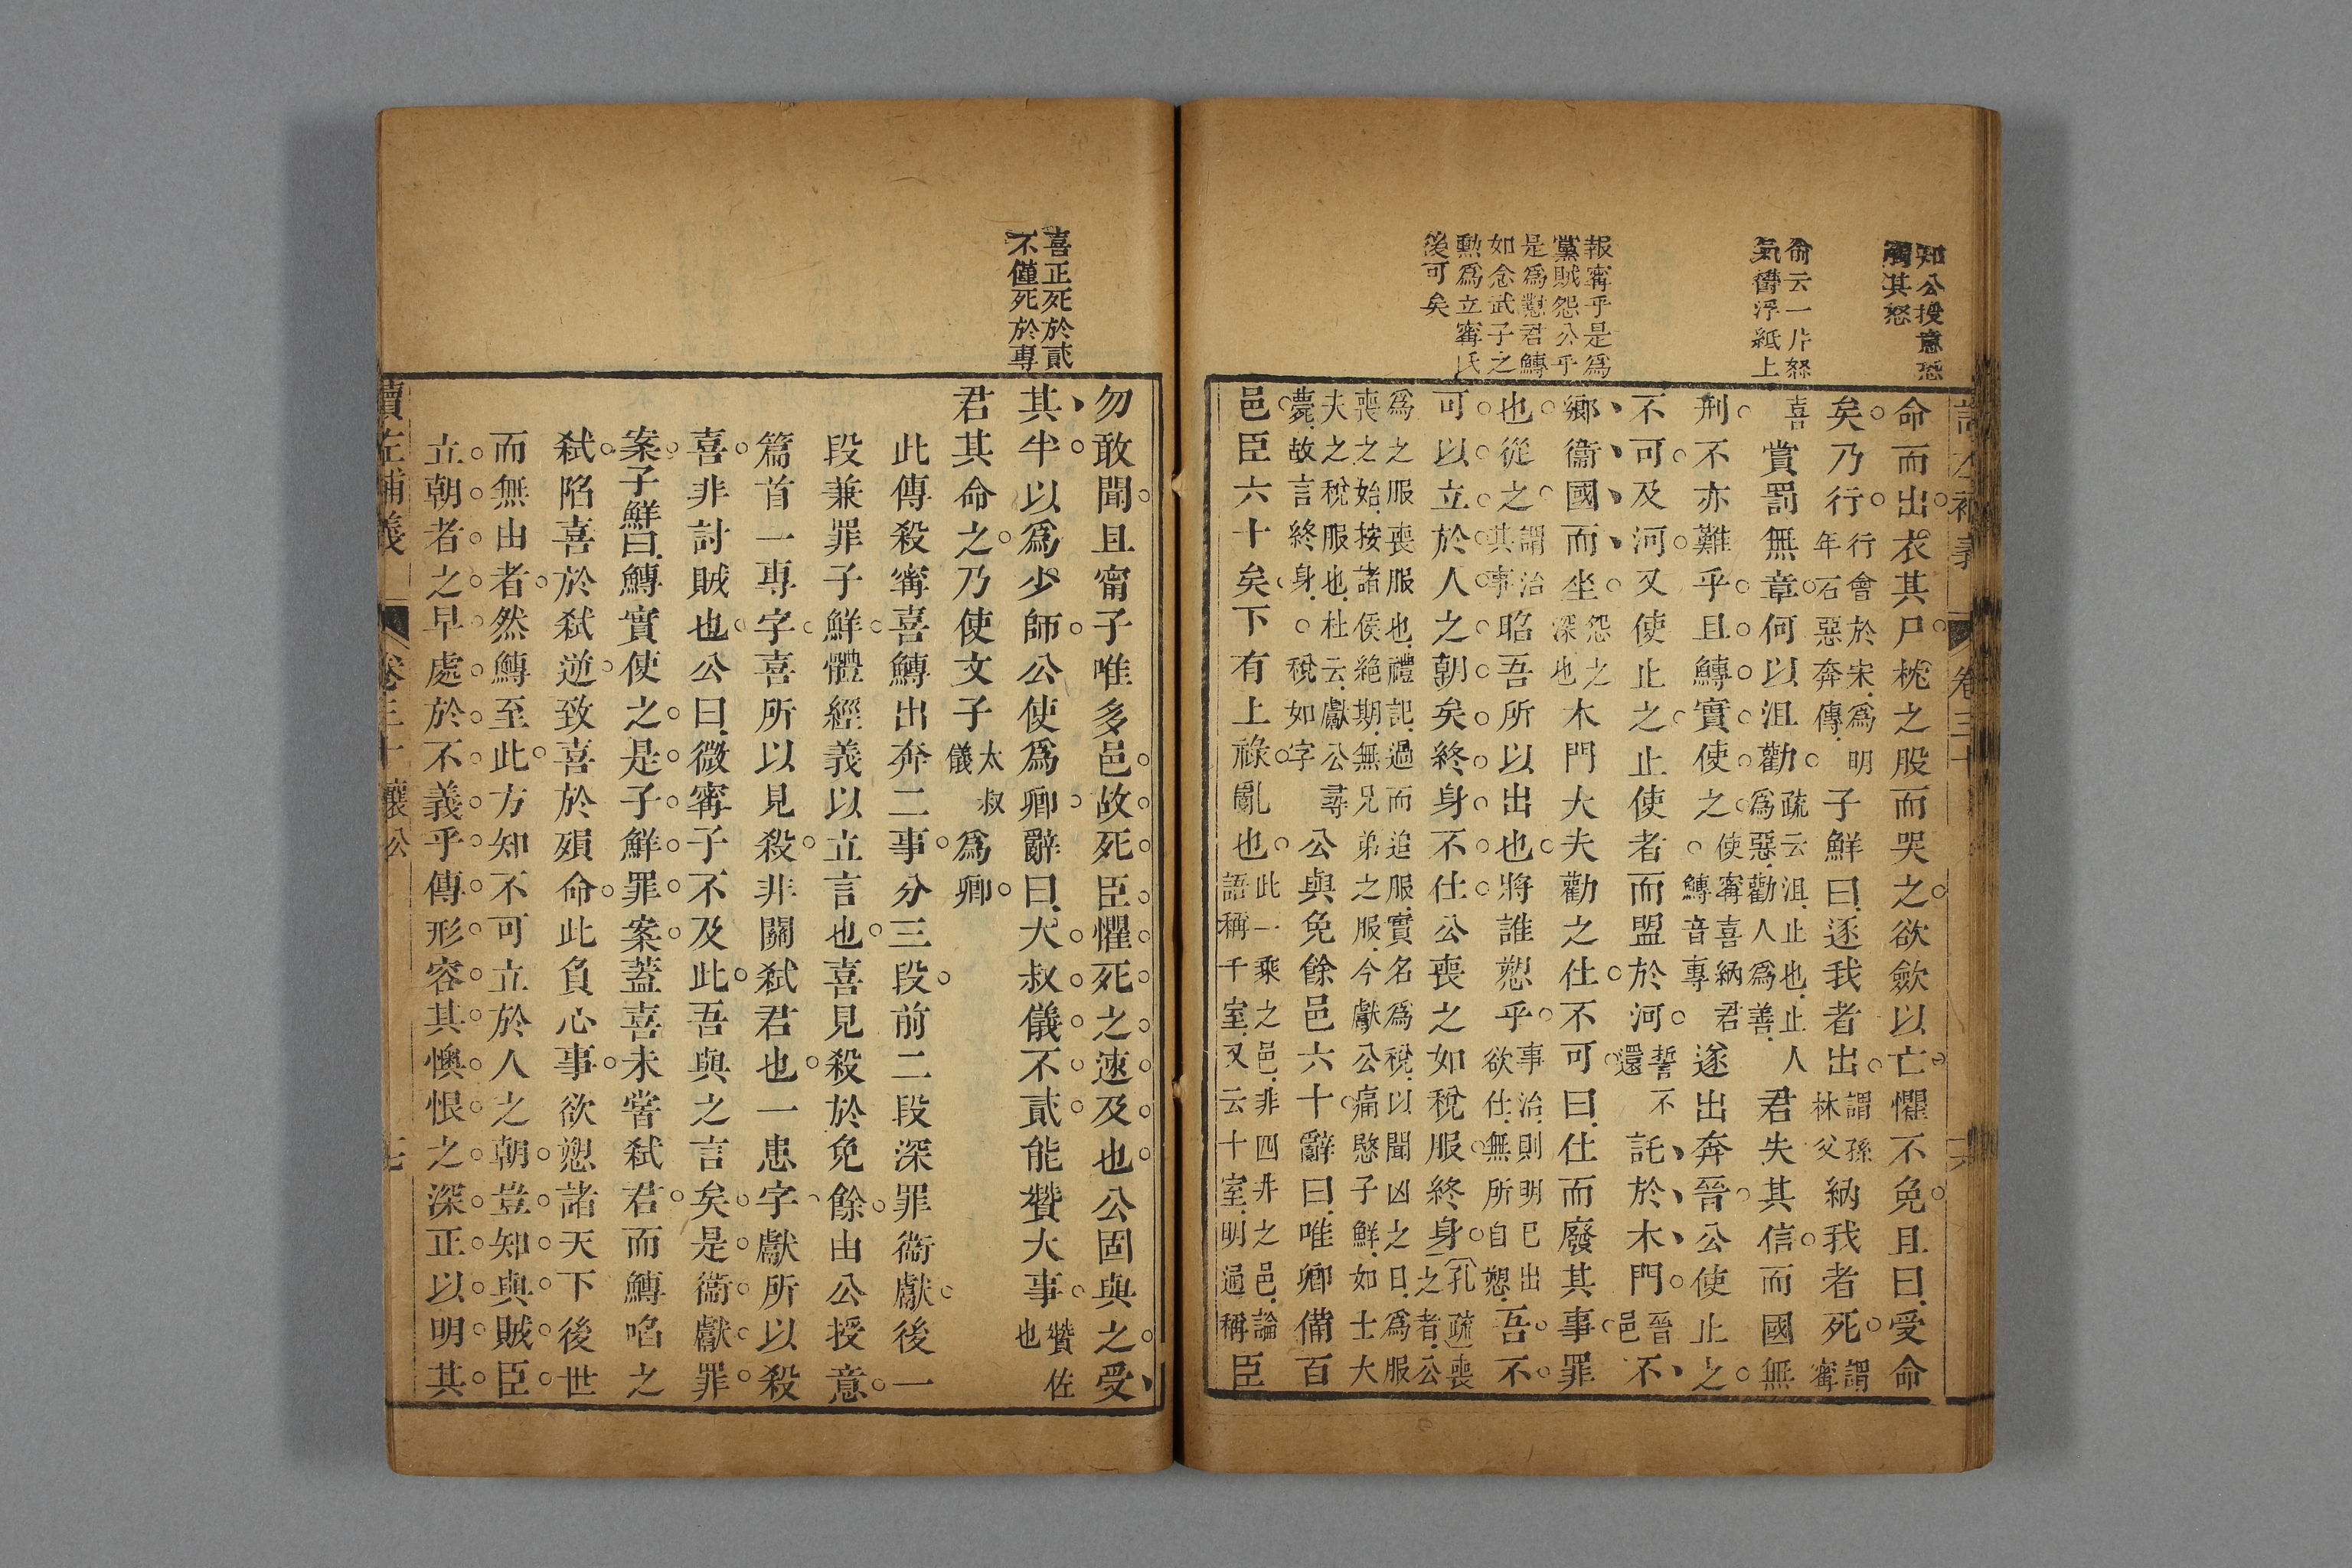 知公授意恐
觸其怒
俞云一片怒
氣鬱浮紙上
報甯乎是爲
黨賊怨公乎
是爲懟君鱄
如念武子之
勲爲立甯氏
後可矣
讀左補義 卷三十 六
命而出衣其尸枕之股而哭之欲斂以亡懼不免且曰受命
矣乃行行會於宋爲明年石惡奔傳子鮮曰逐我者出謂孫林父納我者死謂甯
喜賞罰無章何以沮勸疏云沮止也止人爲惡勸人爲善君失其信而國無
刑不亦難乎且鱄實使之使甯喜納君鱄音專遂出奔晉公使止之
不可及河又使止之止使者而盟於河誓不還託於木門晉邑不
鄉衞國而坐怨之深也木門大夫勸之仕不可曰仕而廢其事罪
也從之謂治其事昭吾所以出也將誰愬乎事治則明已出欲仕無所自愬吾不
可以立於人之朝矣終身不仕公喪之如稅服終身孔疏喪之者公
爲之服喪服也禮記過而追服實名爲稅以聞凶之日爲服
喪之始按諸侯絕期無兄弟之服今獻公痛愍子鮮如士大
夫之稅服也杜云獻公尋薨故言終身稅如字公與免餘邑六十辭曰唯卿備百
邑臣六十矣下有上祿亂也此一乘之邑非四井之邑論語稱千室又云十室明通稱臣
喜正死於貳
不僅死於專
勿敢聞且甯子唯多邑故死臣懼死之速及也公固與之受
其半以爲少師公使爲卿辭曰大叔儀不貳能贊大事贊佐也
君其命之乃使文子太叔儀爲卿
此傳殺甯喜鱄出奔二事分三段前二段深罪衞獻後一
段兼罪子鮮體經義以立言也喜見殺於免餘由公授意
篇首一專字喜所以見殺非關弑君也一患字獻所以殺
喜非討賊也公曰微甯子不及此吾與之言矣是衞獻罪
案子鮮曰鱄實使之是子鮮罪案蓋喜未嘗弑君而鱄啗之
弑陷喜於弑逆致喜於殞命此負心事欲愬諸天下後世
而無由者然鱄至此方知不可立於人之朝豈知與賊臣
立朝者之早處於不義乎傳形容其懊恨之深正以明其
讀左補義 卷三十 襄公 七